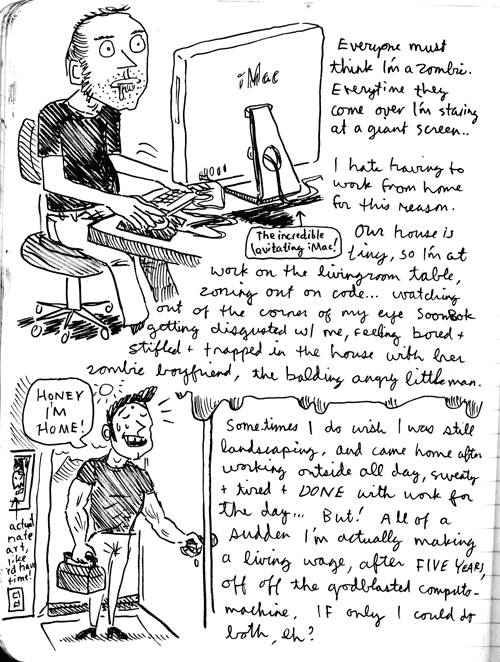 iMac
Everyone must
think I'm a zombie.
Everytime they
come over I'm staring
at a giant screen..
I hate having to
work from home
for this reason.
The incredible
lavitating iMac!
Our house is
tiny, so I'm at
work on the livingroom table,
zoning out on code... watching
out of the corner of my eye SoonBok
getting disgusted w/ me, feeling bored +
stifled + trapped in the house with her
zombie boyfriend, the balding angry little man.
HONEY
I'M
HOME!
actual
nate
art,
like
I'd have
time!
Sometimes I do wish I was still
landscaping, and came home after
working outside all day, sweaty
+ tired + DONE with work for
the day... But! All of a
sudden I'm actually making
a living wage, after FIVE YEARS,
off off the godblasted computo-
machine. IF only I could do
both, eh?